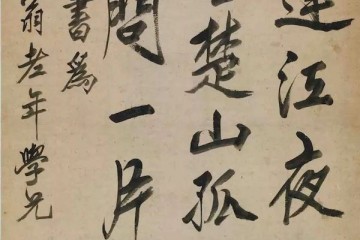 連江夜
楚山孤
問一片
書為
翁老年學兄